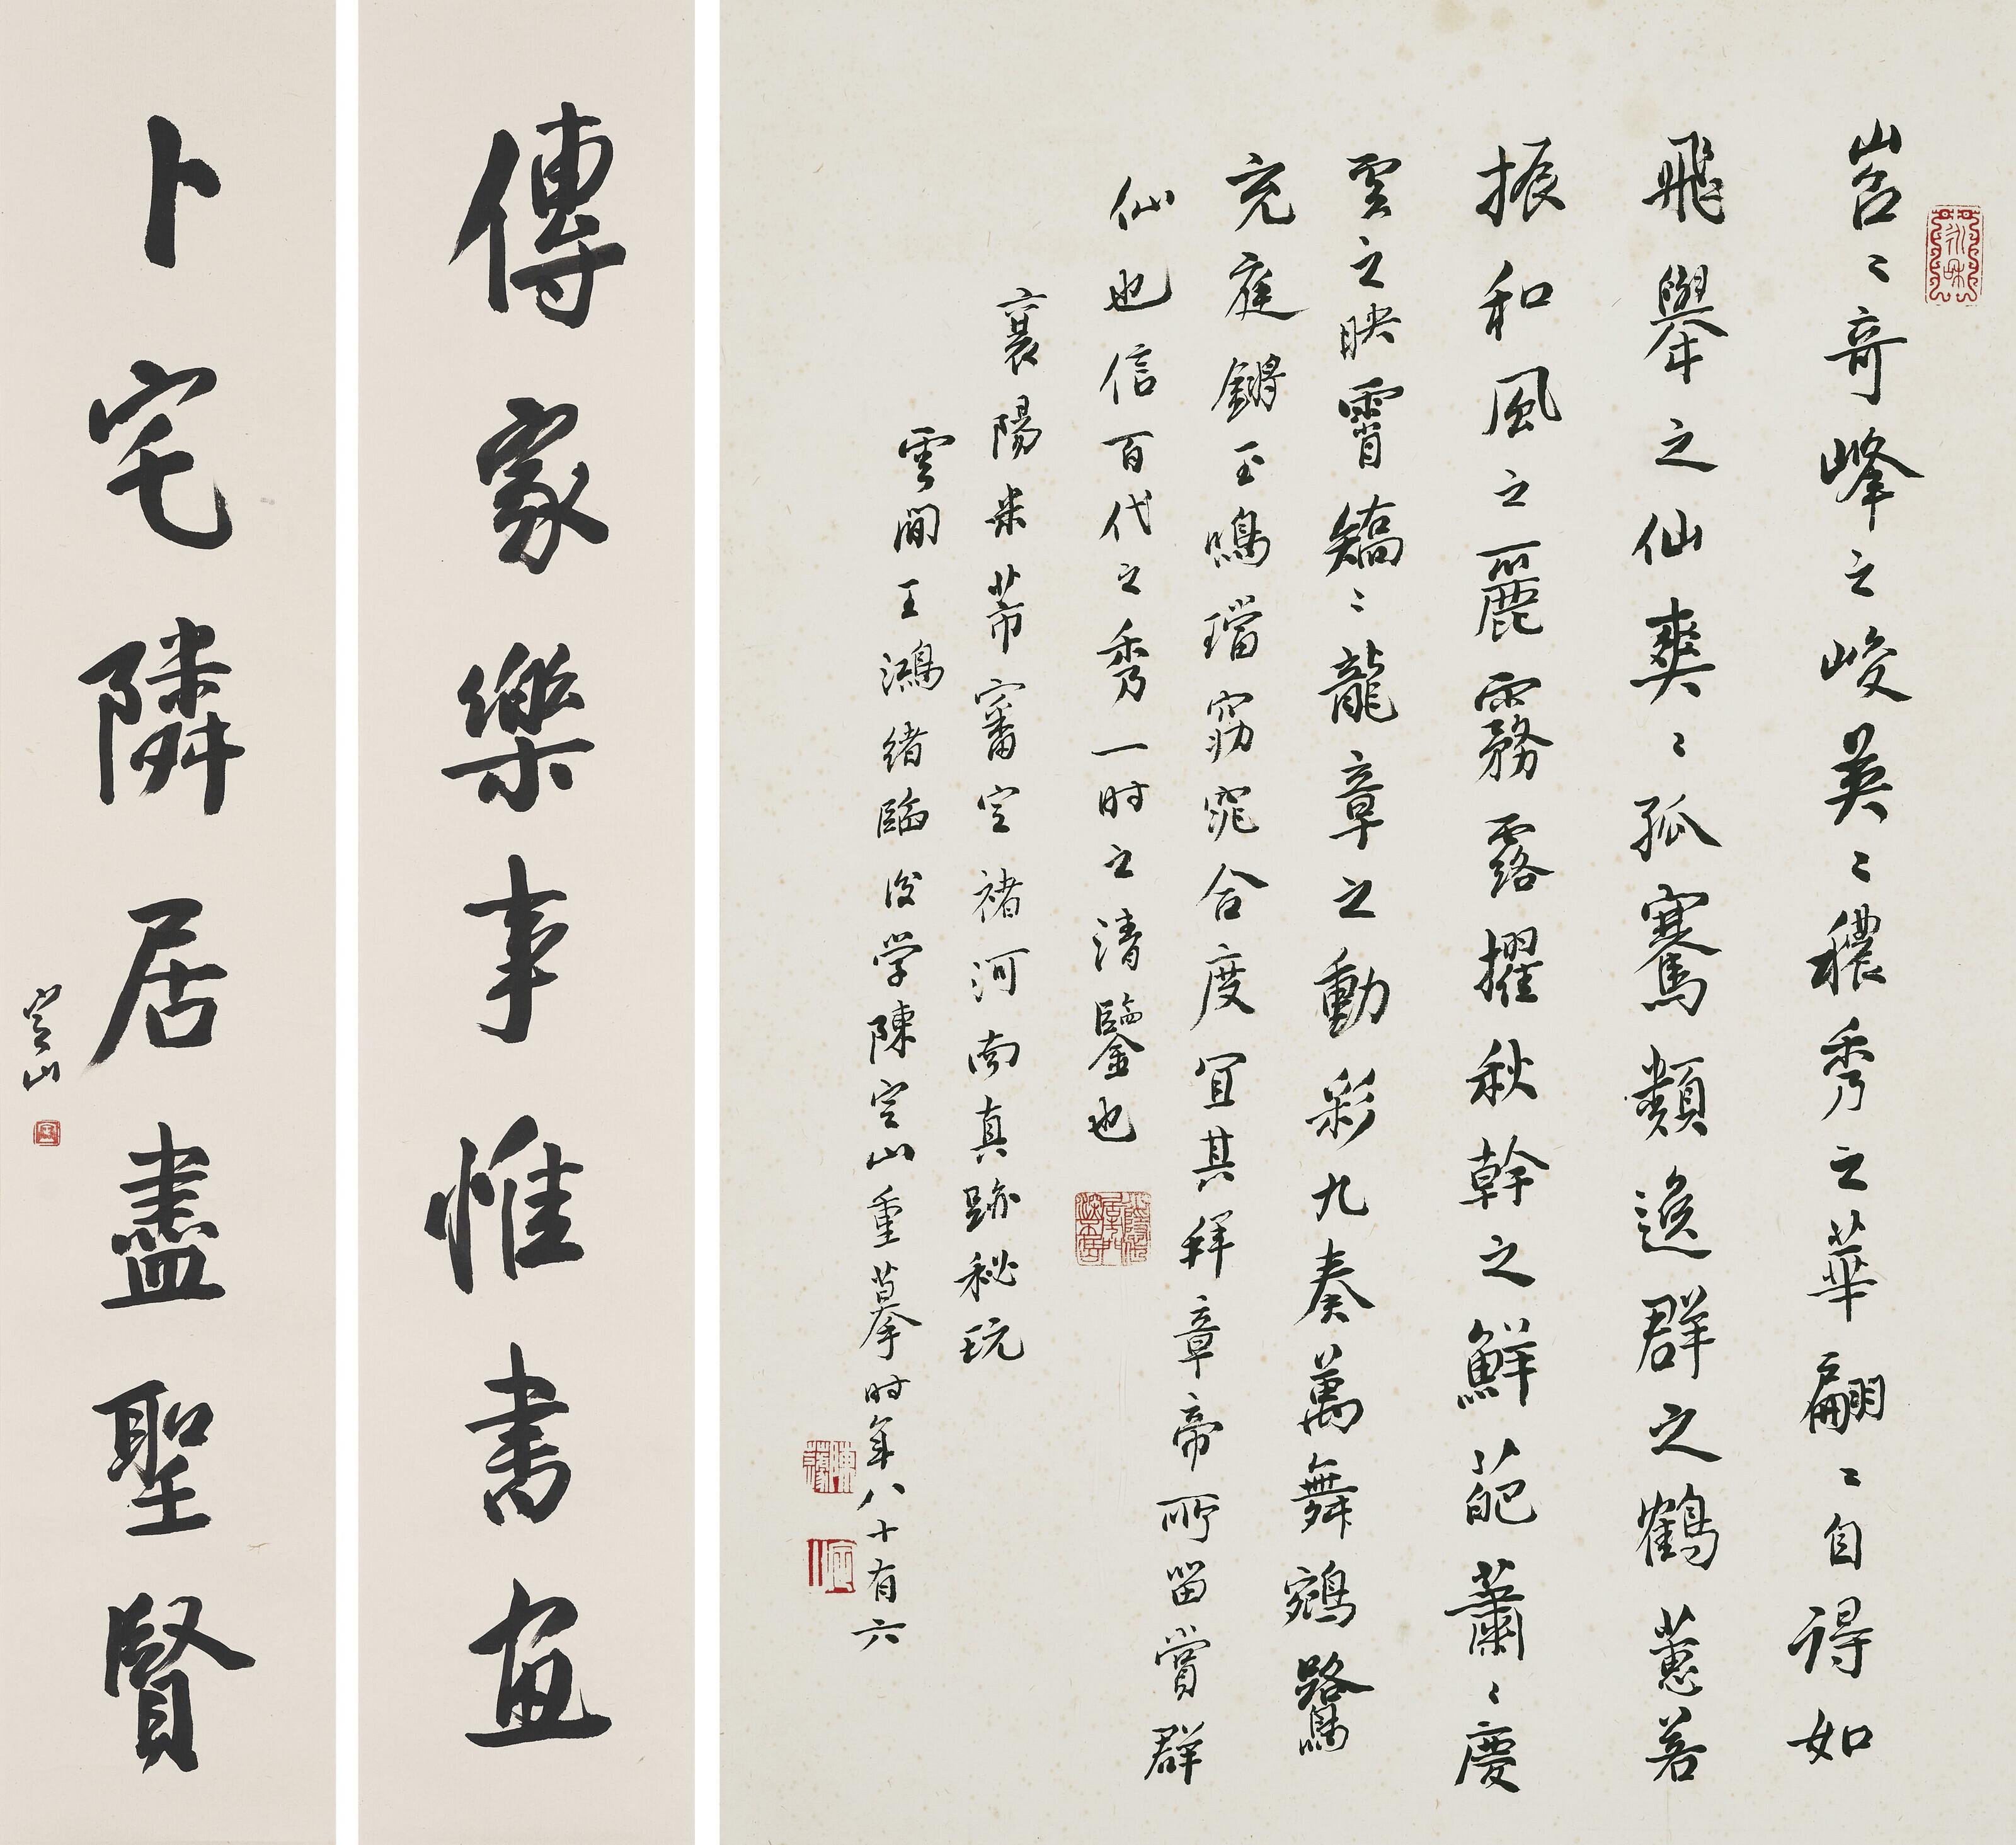 岧〻奇峰之峻英〻穠秀之華翩〻自得如
飛舉之仙爽〻孤騫類逸群之鶴蕙若
振和風之麗霧露擢秋幹之鮮葩蕭〻慶
雲之映霄矯〻龍章之動彩九奏萬舞鵷鷺
充庭鏘玉鳴璫窈窕合度宜其拜章帝所留賞群
仙也信百代之秀一时之清鑒也
襄陽米芾審定禇河南真跡秘玩
雲間王鴻緒臨後学陳定山重摹时年八十有六
傳家樂事惟書畫
卜宅隣居盡聖賢
定山